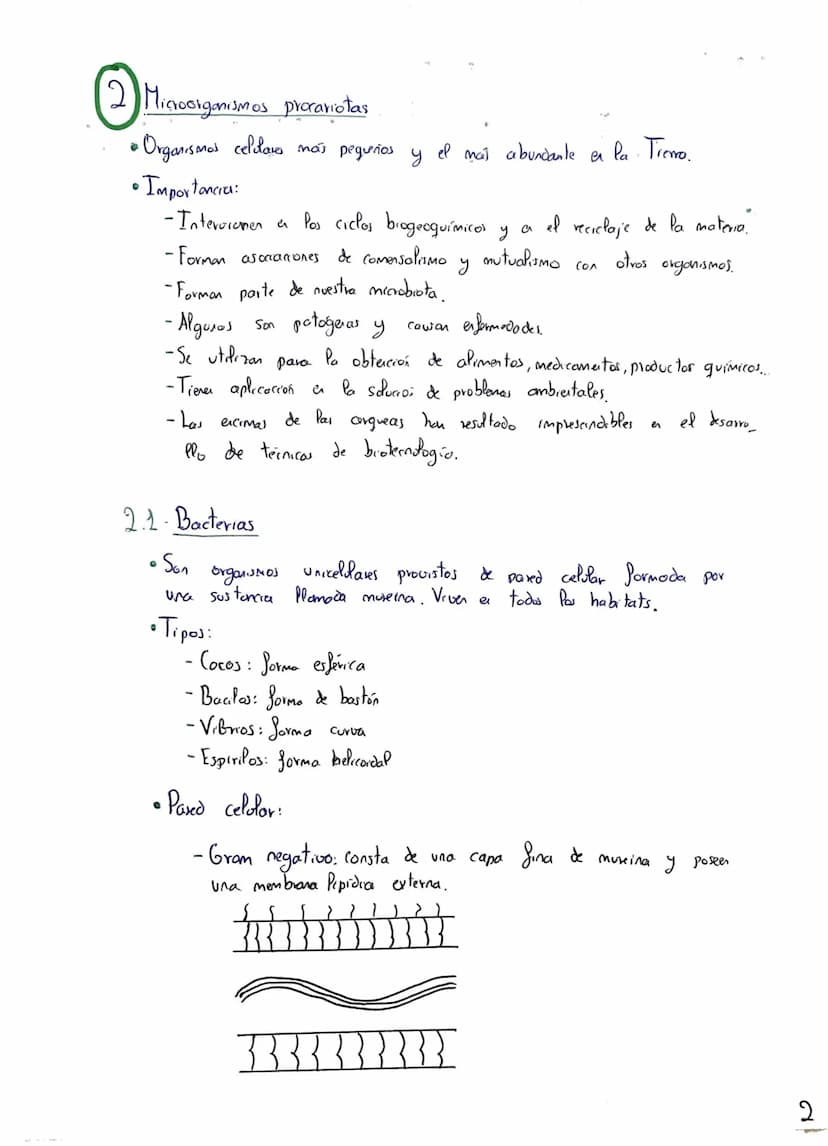 2 Microorganismos procariotas
• Organismos celulares más pequeños y el más abundante en la Tierra.
• Importancia:
- Intervienen en los ciclos biogeoquímicos y en el reciclaje de la materia.
- Forman asociaciones de comensalismo y mutualismo con otros organismos.
- Forman parte de nuestra microbiota.
- Algunos son patógenas y causan enfermedades.
- Se utilizan para la obtención de alimentos, medicamentos, productos químicos...
- Tienen aplicación en la solución de problemas ambientales.
- Las enzimas de las arqueas han resultado imprescindibles en el desarro_
llo de técnicas de biotecnología.
2.1. Bacterias
• Son organismos unicelulares provistos de pared celular formada por
una sustancia llamada mureína. Viven en todos los habitats.
• Tipos:
- Cocos: forma esférica
- Bacilos: forma de bastón
- Vibrios: forma curva
- Espirilos: forma helicoidal
• Pared celular:
- Gram negativo: consta de una capa fina de mureina y poseen
una membrana lipídica externa.
2